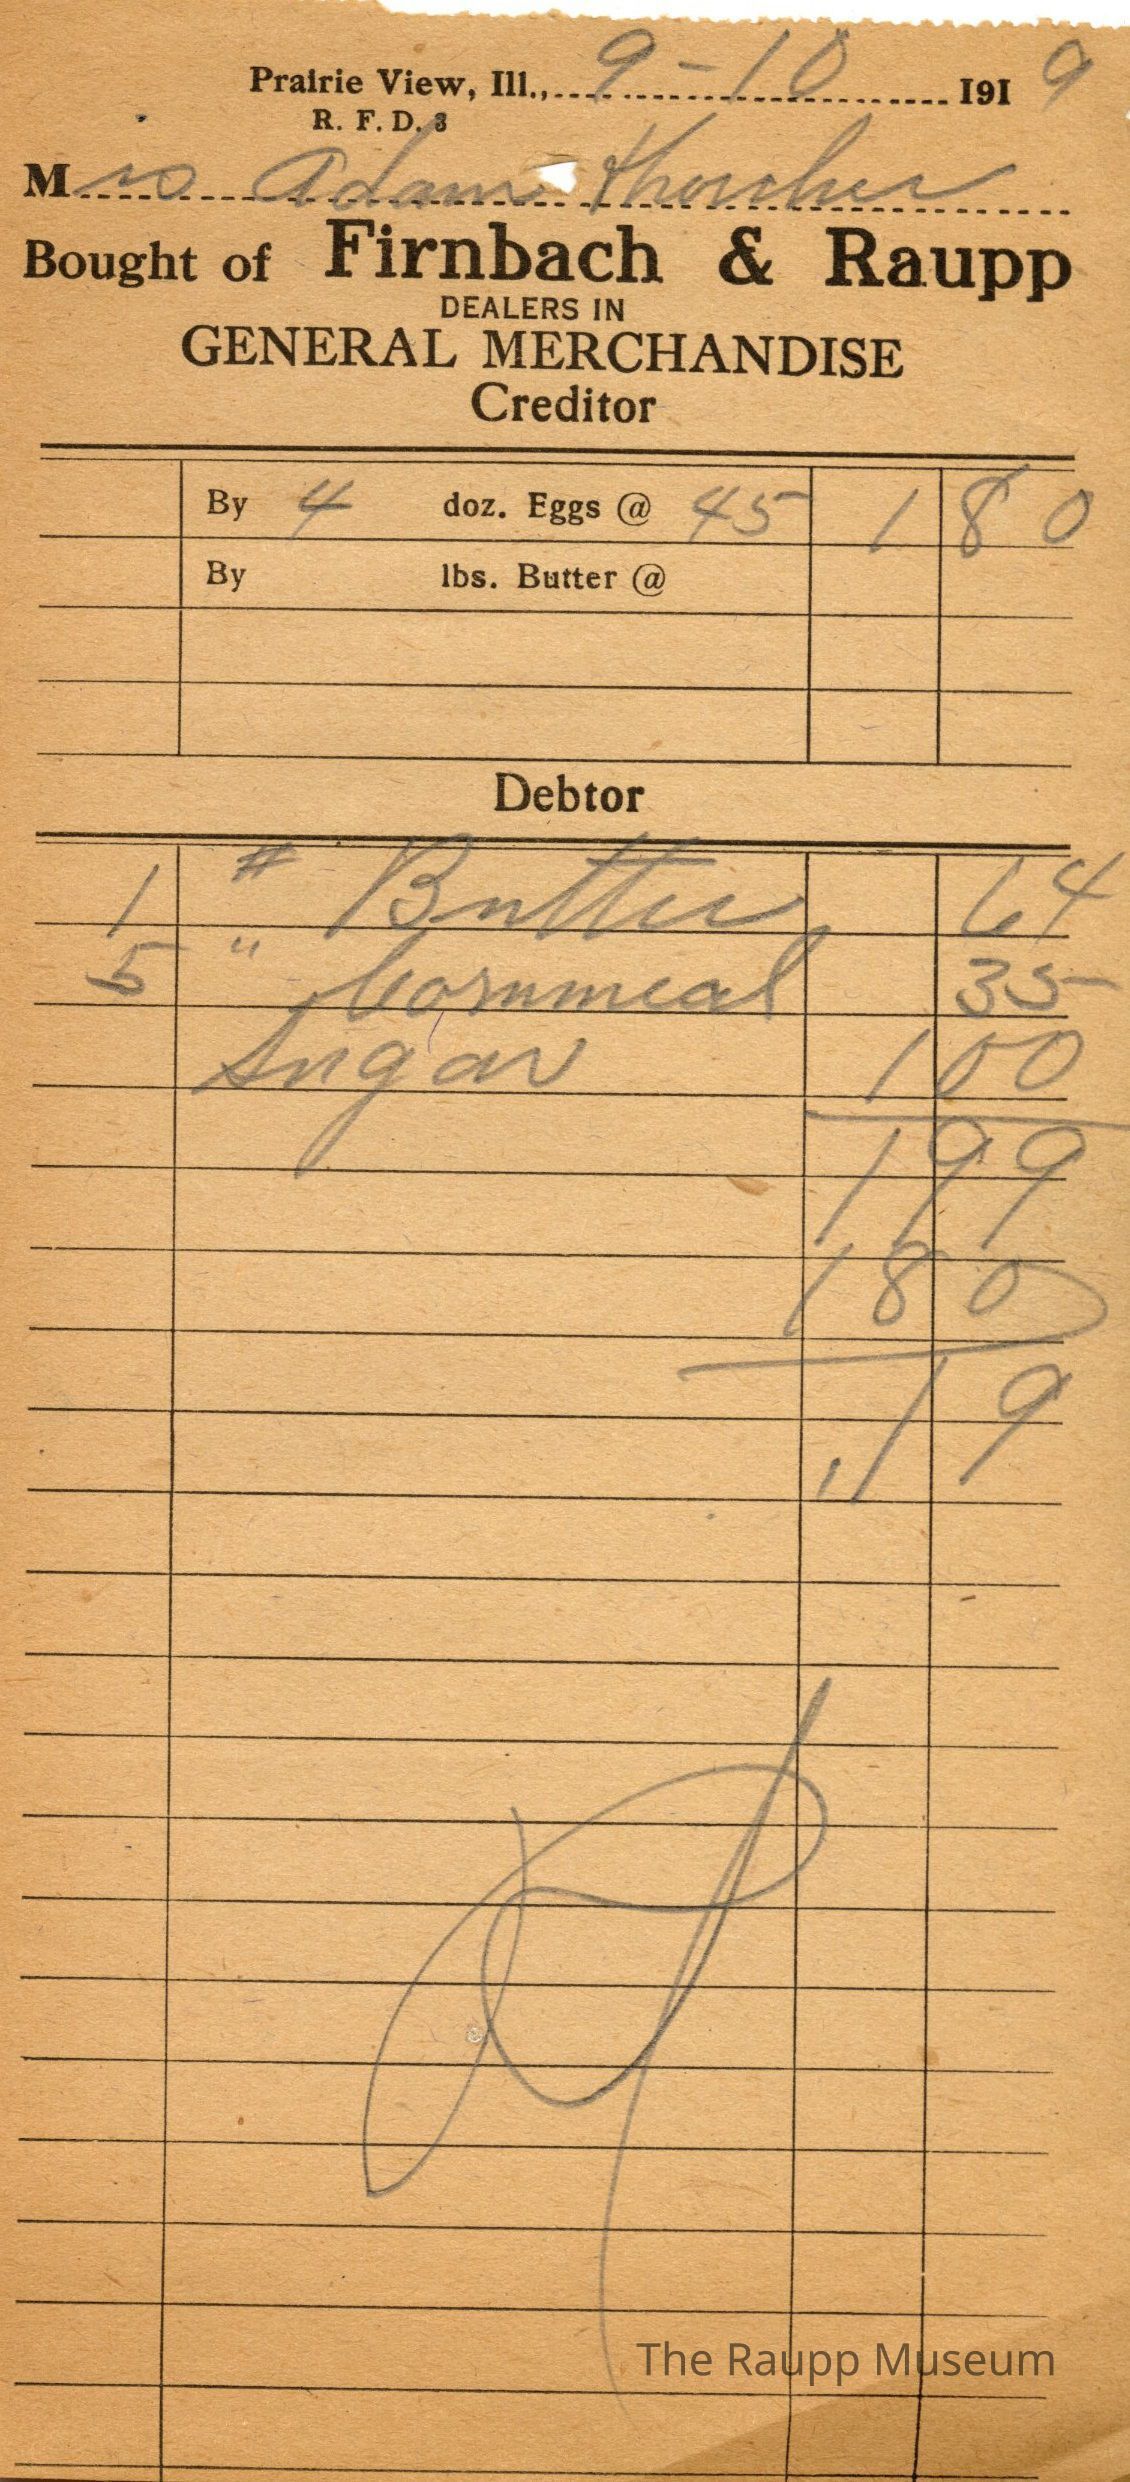 Prairie View, Ill., 9-10 1919
R. F. D. 3
Mrs Adam
Bought of Firnbach & Raupp
DEALERS IN
GENERAL MERCHANDISE
Creditor
By 4 doz. Eggs @ 45 1 80
By lbs. Butter @
Debtor
1 # Butter 64
5 " Cornmeal 35
Sugar 1 00
1 99
1 80
.19
The Raupp Museum